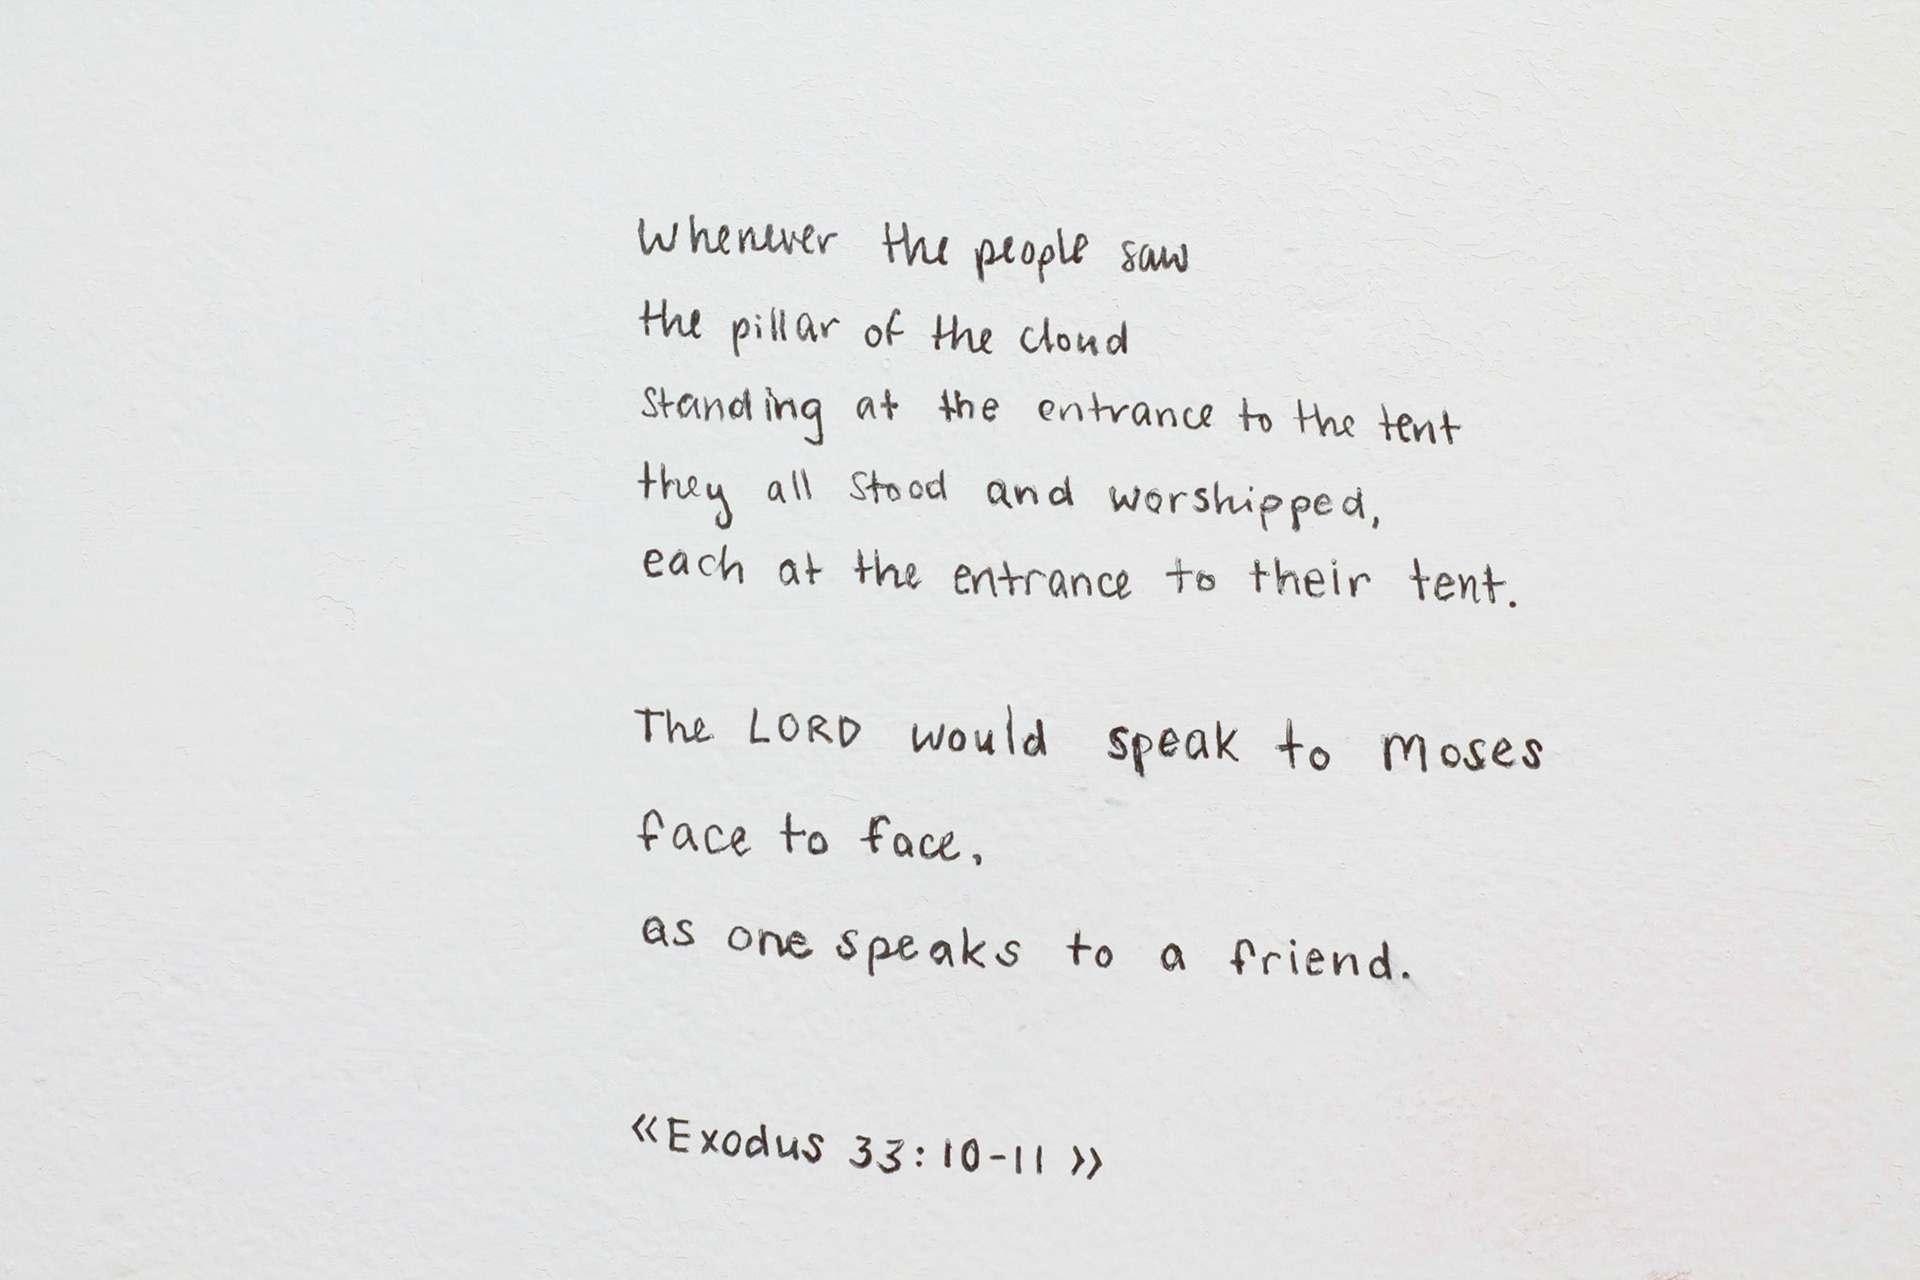 Whenever the people saw
the pillar of the cloud
standing at the entrance to the tent
they all stood and worshipped,
each at the entrance to their tent.
The LORD would speak to Moses
face to face,
as one speaks to a friend.
«Exodus 33:10-11»